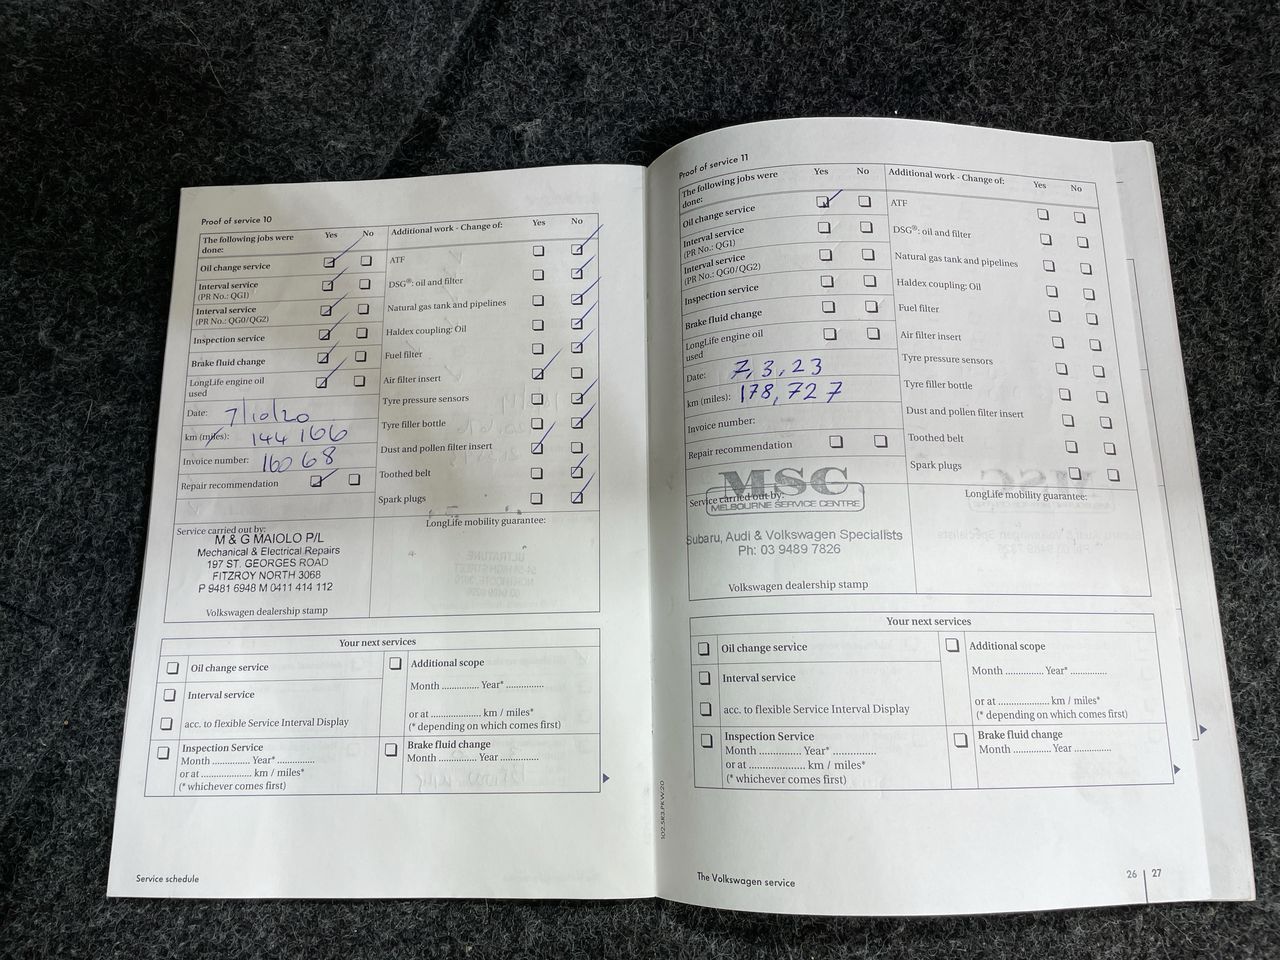 Proof of service 10
The following jobs were done: Yes No
Oil change service
Interval service
(PR No.: QG1)
Interval service
(PR No.: QG0/QG2)
Inspection service
Brake fluid change
LongLife engine oil
used
Date: 7/10/20
km (miles): 144 166
Invoice number: 16068
Repair recommendation
Service carried out by:
M & G MAIOLO P/L
Mechanical & Electrical Repairs
197 ST. GEORGES ROAD
FITZROY NORTH 3068
P 9481 6948 M 0411 414 112
Volkswagen dealership stamp
Additional work - Change of: Yes No
ATF
DSG®: oil and filter
Natural gas tank and pipelines
Haldex coupling: Oil
Fuel filter
Air filter insert
Tyre pressure sensors
Tyre filler bottle
Dust and pollen filter insert
Toothed belt
Spark plugs
LongLife mobility guarantee:
Your next services
Oil change service
Interval service
acc. to flexible Service Interval Display
Inspection Service
Month .............. Year* ..............
or at .................... km / miles*
(* whichever comes first)
Additional scope
Month .............. Year* ..............
or at .................... km / miles*
(* depending on which comes first)
Brake fluid change
Month .............. Year ..............
Service schedule
Proof of service 11
The following jobs were done: Yes No
Oil change service
Interval service
(PR No.: QG1)
Interval service
(PR No.: QG0/QG2)
Inspection service
Brake fluid change
LongLife engine oil
used
Date: 7,3,23
km (miles): 178,727
Invoice number:
Repair recommendation
Service carried out by:
MSC
MELBOURNE SERVICE CENTRE
Subaru, Audi & Volkswagen Specialists
Ph: 03 9489 7826
Volkswagen dealership stamp
Additional work - Change of: Yes No
ATF
DSG®: oil and filter
Natural gas tank and pipelines
Haldex coupling: Oil
Fuel filter
Air filter insert
Tyre pressure sensors
Tyre filler bottle
Dust and pollen filter insert
Toothed belt
Spark plugs
LongLife mobility guarantee:
Your next services
Oil change service
Interval service
acc. to flexible Service Interval Display
Inspection Service
Month .............. Year* ..............
or at .................... km / miles*
(* whichever comes first)
Additional scope
Month .............. Year* ..............
or at .................... km / miles*
(* depending on which comes first)
Brake fluid change
Month .............. Year ..............
102.5R3.PKW.20
The Volkswagen service
26 27